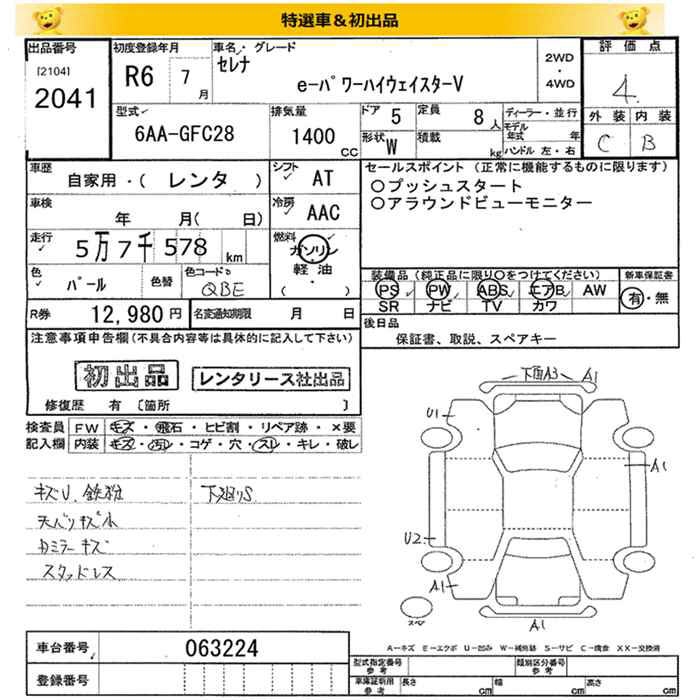 特選車&初出品
出品番号
[2104]
2041
初度登録年月
R6 7月
車名・グレード
セレナ
e-パワーハイウェイスターV
2WD・4WD
評価点
4
外装 内装
C B
型式
6AA-GFC28
排気量
1400 CC
ドア 5
定員 8人
形状 W
積載 kg
ディーラー・並行
モデル年式 年
ハンドル 左・右
車歴
自家用・( レンタ )
シフト AT
車検
年 月( 日)
冷房 AAC
走行
5万7千578 km
燃料
ガソリン・軽油
( ・ )
色
パール
色替
色コード
QBE
セールスポイント (正常に機能するものに限ります)
○プッシュスタート
○アラウンドビューモニター
装備品 (純正品に限り○をつけてください)
PS PW ABS エアB AW
SR ナビ TV カワ
新車保証書
有・無
R券 12,980 円
名変通知期限 月 日
後日品
保証書、取説、スペアキー
注意事項申告欄(不具合内容等は具体的に記入して下さい)
初出品 レンタリース社出品
修復歴 有 〔箇所 〕
検査員記入欄
FW キズ・飛石・ヒビ割・リペア跡・×要
内装 キズ・汚レ・コゲ・穴・スレ・キレ・破レ
キズU、鉄粉 下廻りS
天バリキズ小
カミラーキズ
スタッドレス
下面A3 A1
U1
A1
U2
A1
A1
スペ
A-キズ E-エクボ U-凹み W-補修跡 S-サビ C-腐食 XX-交換済
車台番号 063224
登録番号
型式指定番号 参考
類別区分番号 参考
車庫証明用 参考 長さ cm 幅 cm 高さ cm